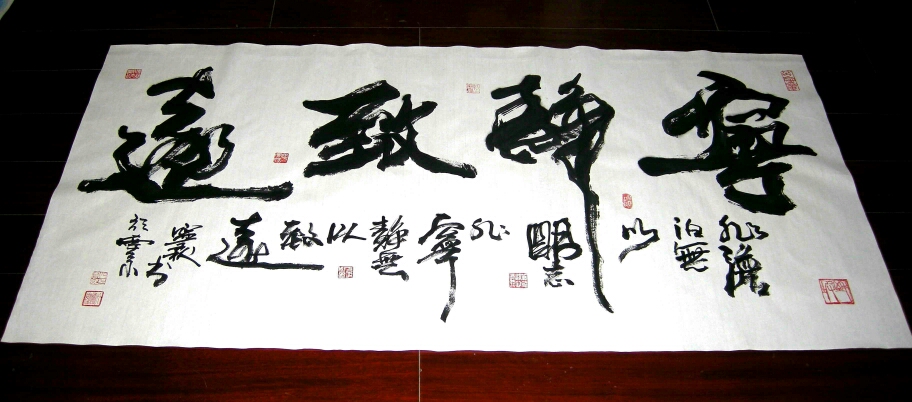 寧靜致遠
非澹
泊無
以
明志
非
寧
靜無
以
致
遠